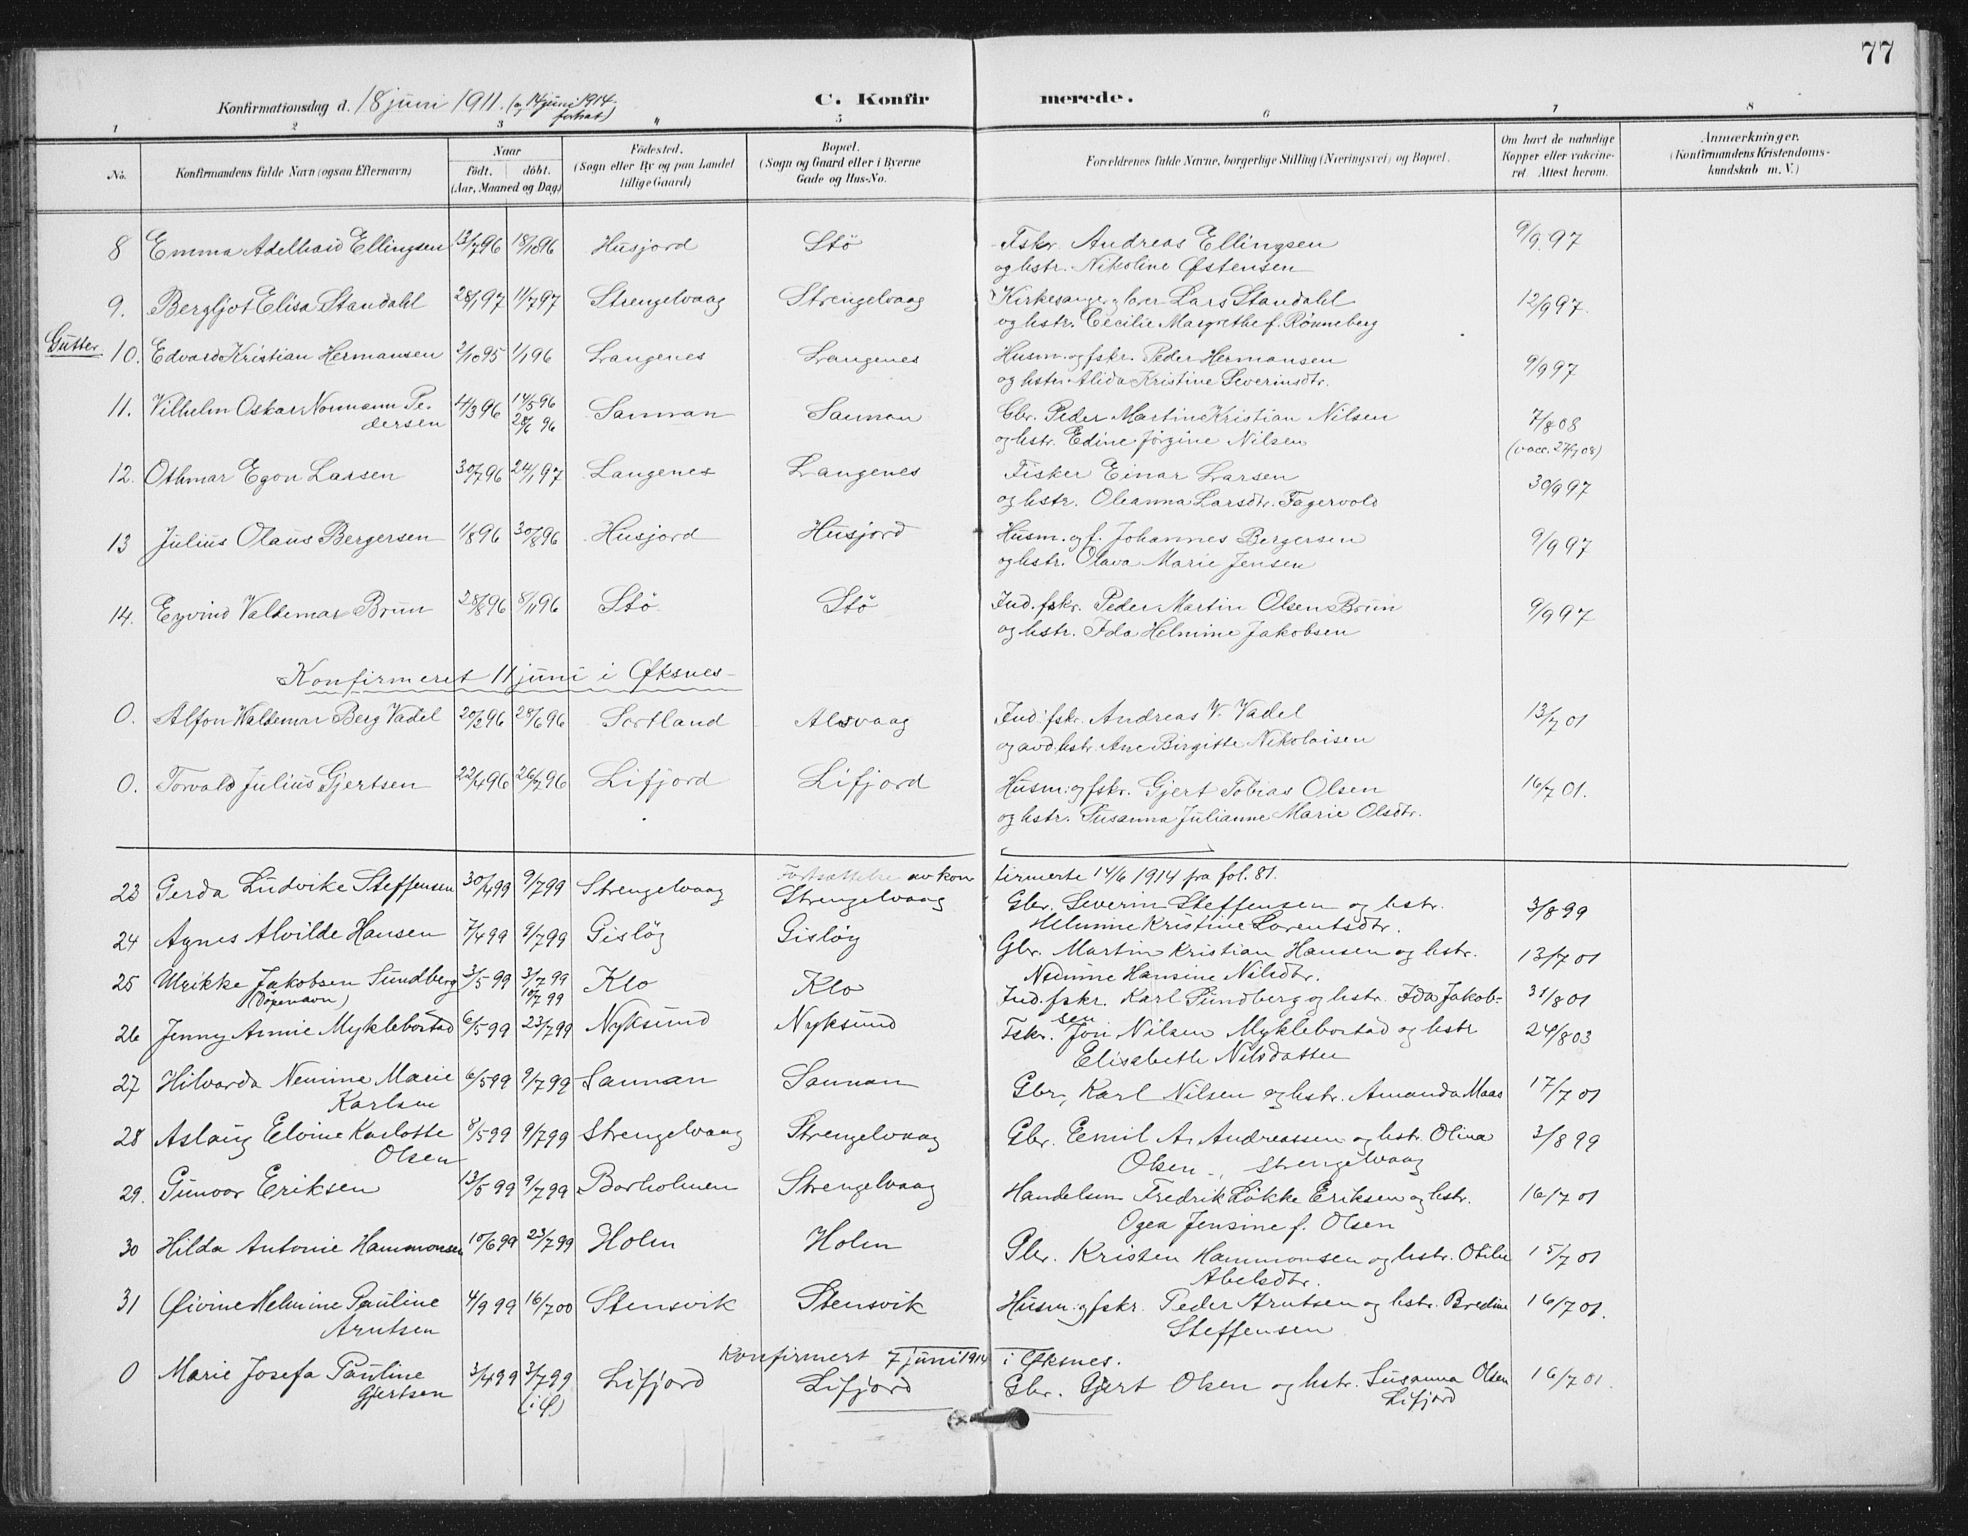 77
Konfirmationsdag d. 18 juni 1911. (og 14 juni 1914 fortsat)
C. Konfirmerede.
1 2 3 4 5 6 7 8
No. Konfirmandens fulde Navn (ogsaa Efternavn) Naar født. døbt. (Aar, Maaned og Dag) Fødested. (Sogn eller By og paa Landet tillige Gaard) Bopæl. (Sogn og Gaard eller i Byerne Gade og Hus-No. Forældrenes fulde Navne, borgerlige Stilling (Næringsvei) og Bopæl. Om havt de naturlige Kopper eller vakcineret Attest herom. Anmærkninger. (Konfirmandens Kristendomskundskab m. V.)
8 Emma Adelhaid Ellingsen 13/7 96 18/10 96 Husjord Stö Fskr. Andreas Ellingsen 9/9 97
og hstr. Nikoline Østensen
9. Bergljot Elisa Standahl 28/1 97 11/7 97 Strengelvaag Strengelvaag Kirkesanger og lærer Lars Standahl 12/9 97.
og hstr. Cecilie Margrethe f. Rönneberg
Gutter
10. Edvard Kristian Hermansen 2/10 95 1/1 96 Langenes Langenes Husm. og fskr. Peder Hermansen 9/9 97
og hstr. Alida Kristine Severinsdtr.
11. Vilhelm Oskar Normann Pe- 4/3 96 14/5 96 Sannan Sannan Gbr. Peder Martin Kristian Nilsen 7/8 08
dersen 28/6 96 og hstr. Edine Jörgine Nilsen (vacc. 27/7 08)
12. Othmar Egon Larsen 30/7 96 24/1 97 Langenes Langenes Fisker Einar Larsen 30/9 97
og hstr. Oleanna Larsdtr. Fagervold
13 Julius Olaus Bergersen 1/8 96 30/8 96 Husjord Husjord Husm. og f. Johannes Bergersen 9/9 97
og hstr. Olava Marie Jensen
14. Eyvind Valdemar Brun 28/8 96 8/11 96 Stö Stö Ind. fskr. Peder Martin Olsen Brun 9/9 97
og hstr. Ida Helmine Jakobsen
Konfirmeret 11 juni i Øksnes
0. Alfon Waldemar Berg Vadel 20/3 96 28/6 96 Sortland Alsvaag Ind. fskr. Andreas V. Vadel 13/7 01
og avd. hstr. Ane Birgitte Nikolaisen
0. Torvald Julius Gjertsen 22/4 96 26/7 96 Lifjord Lifjord Husm. og fskr. Gjert Tobias Olsen 16/7 01.
og hstr. Susanna Julianne Marie Olsdtr.
Fortsættelse av konfirmerte 14/6 1914 fra fol. 81.
23 Gerda Ludvike Steffensen 30/4 99 9/7 99 Strengelvaag Strengelvaag Gbr. Severin Steffensen og hstr. 3/8 99
Helmine Kristine Lorentsdtr.
24 Agnes Alvilde Hansen 7/4 99 9/7 99 Gislöy Gislöy Gbr. Martin Kristian Hansen og hstr. 13/7 01
Nemine Hansine Nilsdtr.
25 Ulrikke Jakobsen Sundberg 3/5 99 3/7 99 Klo Klo Ind. fskr. Karl Sundberg og hstr. Ida Jakob- 31/8 01
(Döpenavn) 10/7 99 sen
26 Jenny Annie Myklebostad 6/5 99 23/7 99 Nyksund Nyksund Fskr. Jon Nilsen Myklebostad og hstr 24/8 03
Elisabeth Nilsdatter
27 Hilvarda Nemine Marie 6/5 99 9/7 99 Sannan Sannan Gbr. Karl Nilsen og hstr. Amanda Maas 17/7 01
Karlsen
28 Aslaug Elvine Karlotte 8/5 99 9/7 99 Strengelvaag Strengelvaag Gbr. Emil A. Andreassen og hstr. Olina 3/8 99
Olsen Olsen, Strengelvaag
29. Gunvor Eriksen 13/5 99 9/7 99 Borholmen Strengelvaag Handelsm Fredrik Lökke Eriksen og hstr. 16/7 01
Ogea Jensine f. Olsen
30 Hilda Antonie Hammonsen 10/6 99 23/7 99 Holm Holm Gbr. Kristen Hammonsen og hstr. Otilie 15/7 01
Abelsdtr.
31 Øivine Helmine Pauline 4/9 99 16/7 00 Stensvik Stensvik Husm. og fskr. Peder Arntsen og hstr. Bredine 16/7 01.
Arntsen Steffensen
Konfirmert 7 juni 1914 i Øksnes.
0 Marie Josefa Pauline 3/4 99 3/7 99 Lifjord Lifjord Gbr. Gjert Olsen og hstr. Susanna Olsen 16/7 01.
Gjertsen (i Ø) Lifjord